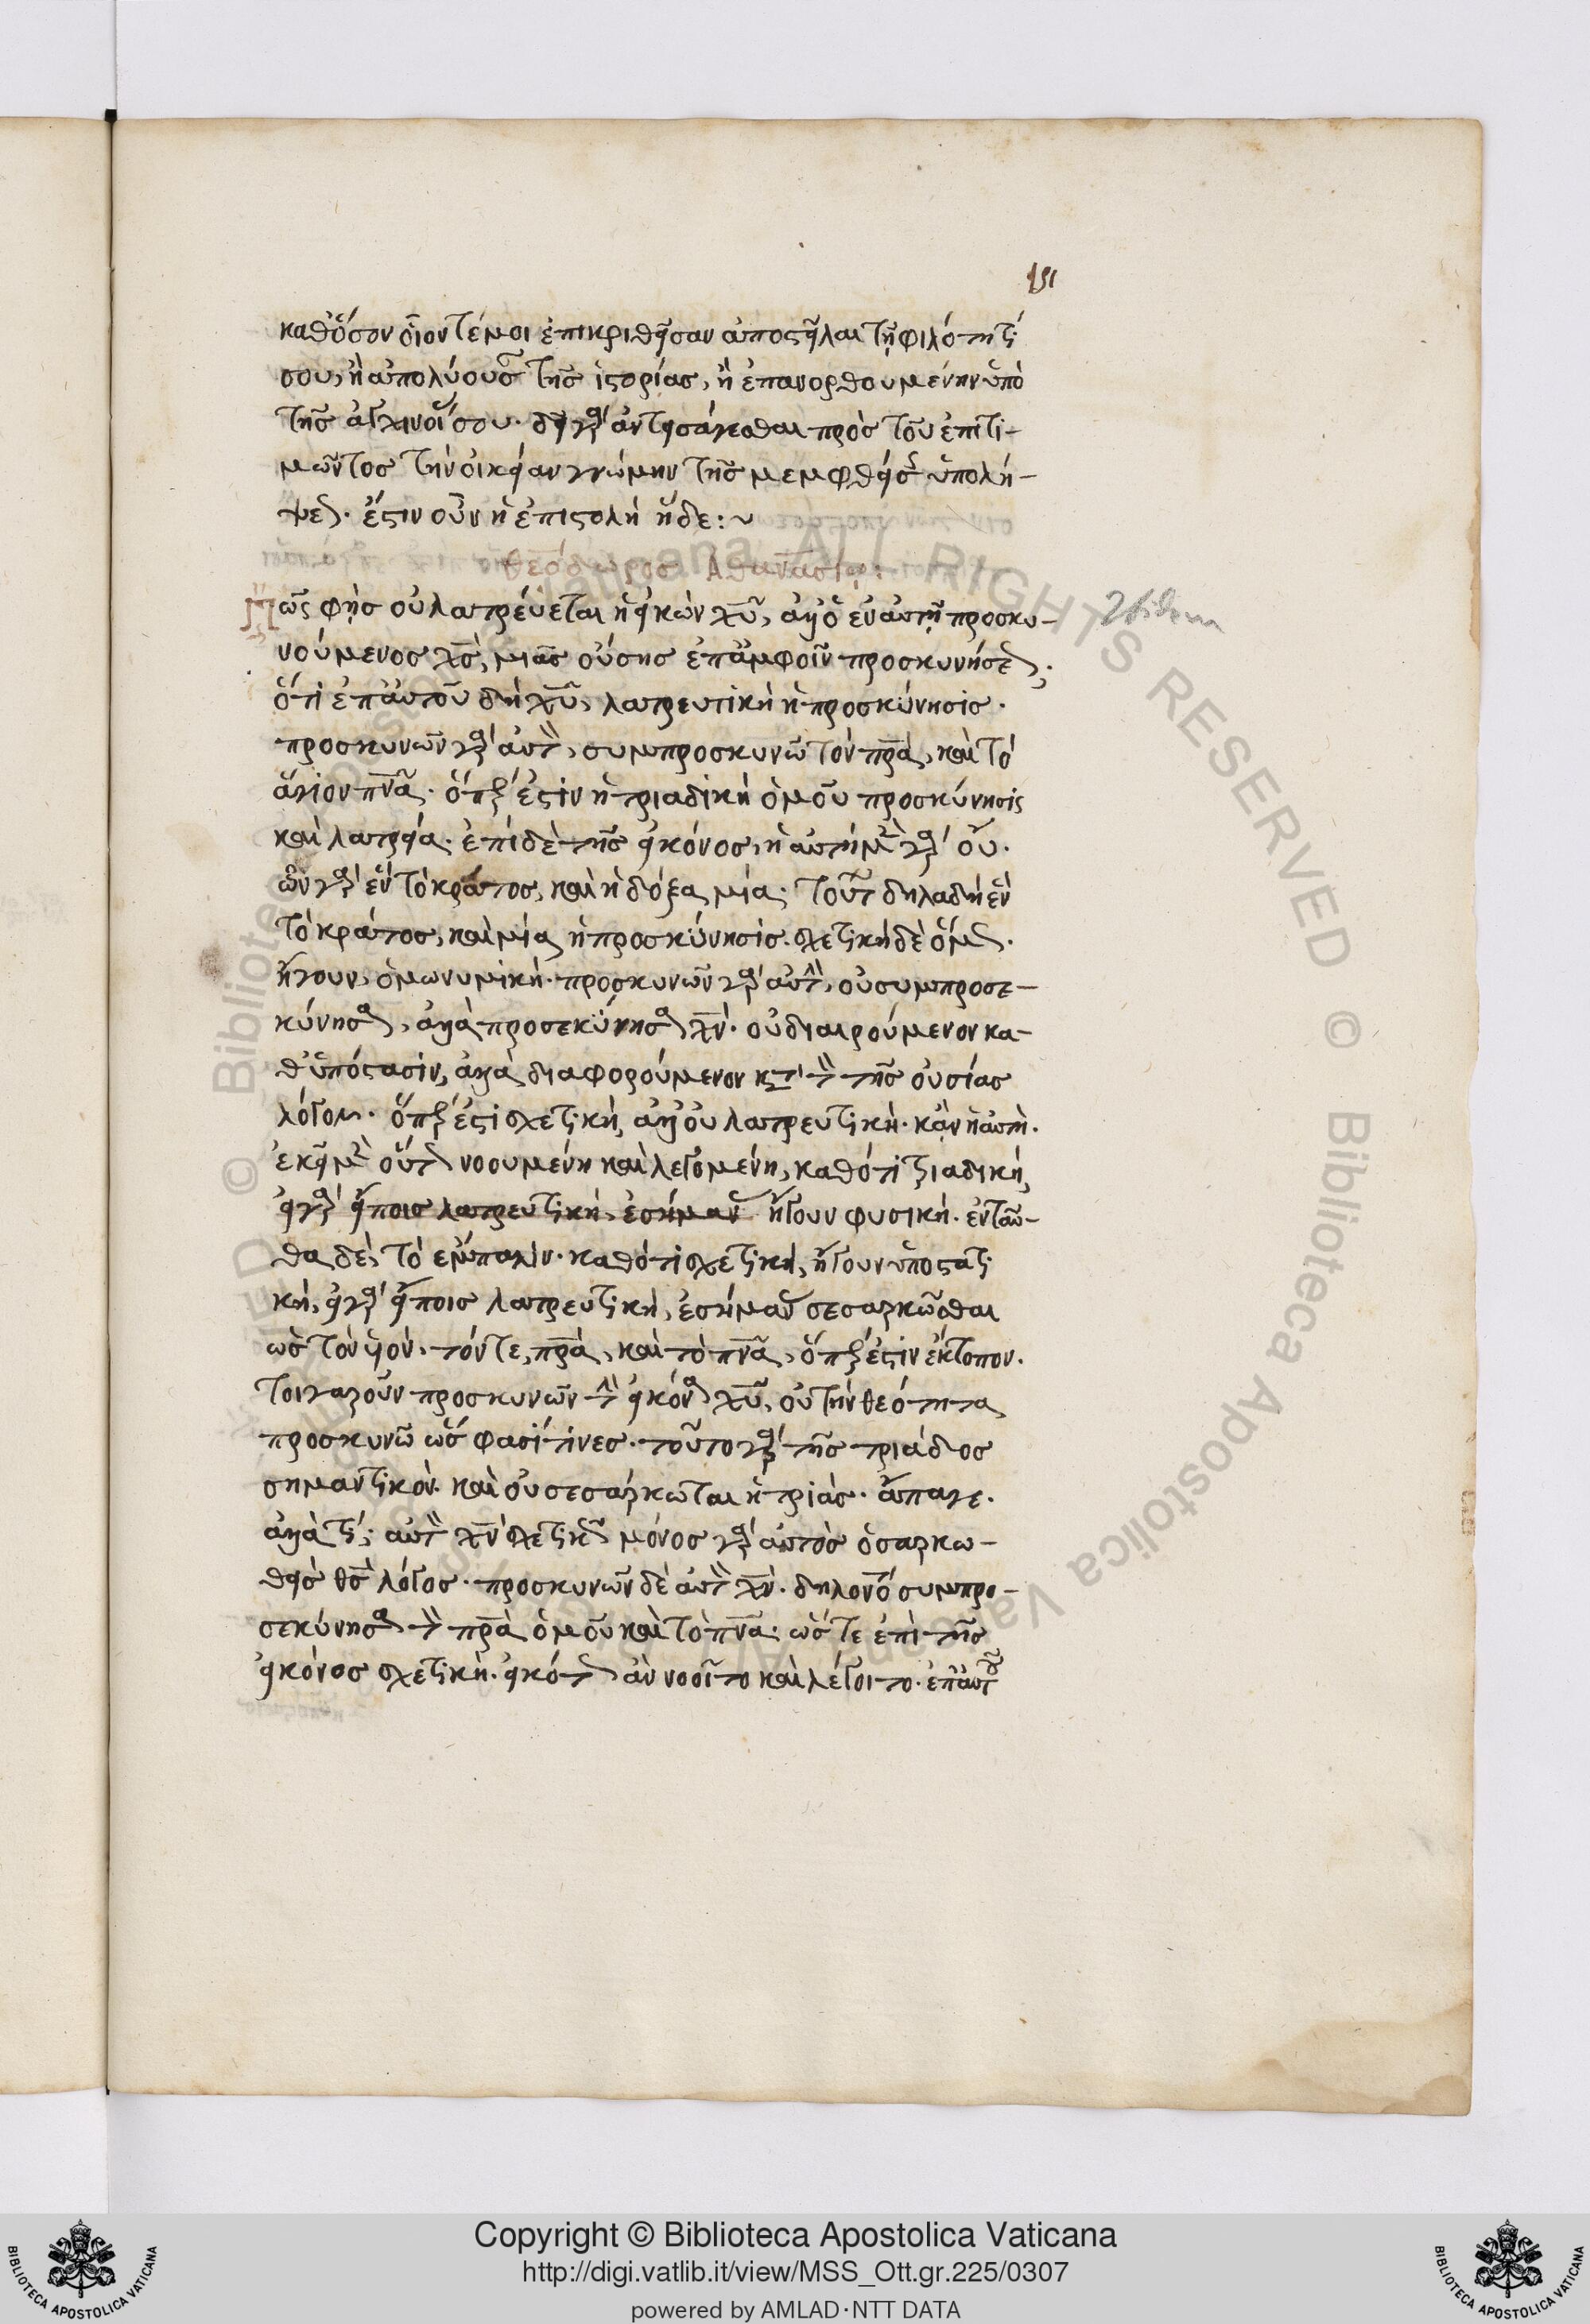 151
καθόσον οἷόν τέ μοι ἐπικριθεῖσαν ἀποστεῖλαι τῇ φιλότητί
σου, ἢ ἀπολύουσ τῆς ἱστορίας, ἢ ἐπανορθουμένην ὑπὸ
τῆς ἀγχινοί σου. δεῖ γὰρ ἀντεισάγεσθαι πρὸς τοῦ ἐπιτι-
μῶντος τὴν οἰκείαν γνώμην τῆς μεμφθείσης ὑπολή-
ψεως. ἔστιν οὖν ἡ ἐπιστολὴ ἥδε: ~
θεόδωρος Ἀθανασίῳ:
Πῶς φῂς οὐ λατρεύεται ἡ εἰκὼν χῦ, ἀλλ' ὁ ἐν αὐτῇ προσκυ-
νούμενος χς, μιᾶς οὔσης ἐπ' ἀμφοῖν προσκυνήσεως;
ὅτι ἐπ' αὐτοῦ δὴ χῦ, λατρευτικὴ ἡ προσκύνησις.
προσκυνῶν γὰρ αὐτὸν, συμπροσκυνῶ τὸν πρα, καὶ τὸ
ἅγιον πνα. ὅπερ ἐστὶν ἡ τριαδικὴ ὁμοῦ προσκύνησις
καὶ λατρεία. ἐπὶ δὲ τῆς εἰκόνος, ἡ αὐτὴ μὲν γὰρ οὔ.
ὧν γὰρ ἓν τὸ κράτος, καὶ ἡ δόξα μία. τούτ δηλαδὴ ἓν
τὸ κράτος, καὶ μία ἡ προσκύνησις. σχετικὴ δὲ ὅμως.
ἤγουν, ὁμωνυμική. προσκυνῶν γὰρ αὐτὴν, οὐ συμπροσε-
κύνησα, ἀλλὰ προσεκύνησα χν. οὐ διαιρούμενον κα-
θ' ὑπόστασιν, ἀλλὰ διαφορούμενον κατὰ τὸν τῆς οὐσίας
λόγον. ὅπερ ἐστὶ σχετικὴ, ἀλλ' οὐ λατρευτική. κἂν ἡ αὐτὴ.
ἐκεῖ μὲν οὕτως νοουμένη καὶ λεγομένη, καθότι τριαδικὴ,
εἰ γὰρ εἴποις λατρευτικὴ, ἐσήμαν ἤγουν φυσική. ἐνταῦ-
θα δὲ, τὸ ἔμπαλιν. καθότι σχετικὴ, ἤγουν ὑποστατι
κὴ, εἰ γὰρ εἴποις λατρευτικὴ, ἐσήμαν σεσαρκῶσθαι
ὡς τὸν υἱόν. τόν τε, πρα, καὶ τὸ πνα, ὅπερ ἐστὶν ἔκτοπον.
τοιγαροῦν προσκυνῶν τὴν εἰκόνα χῦ, οὐ τὴν θεότητα
προσκυνῶ ὥς φασί τινες. τοῦτο γὰρ τῆς τριάδος
σημαντικόν. καὶ οὐ σεσάρκωται ἡ τριάς. ἄπαγε.
ἀλλὰ τί; αὐτὸν χν σχετικῶς μόνος γὰρ αὐτὸς ὁ σαρκω-
θεὶς θς λόγος. προσκυνῶν δὲ αὐτὸν χν. δηλονότι συμπρο-
σεκύνησα τὸν πρα ὁμοῦ καὶ τὸ πνα. ὥστε ἐπὶ τῆς
εἰκόνος σχετικὴ. εἰκότως ἂν νοοῖτο καὶ λέγοιτο. ἐπ' αὐτοῦ
Copyright © Biblioteca Apostolica Vaticana
http://digi.vatlib.it/view/MSS_Ott.gr.225/0307
powered by AMLAD·NTT DATA